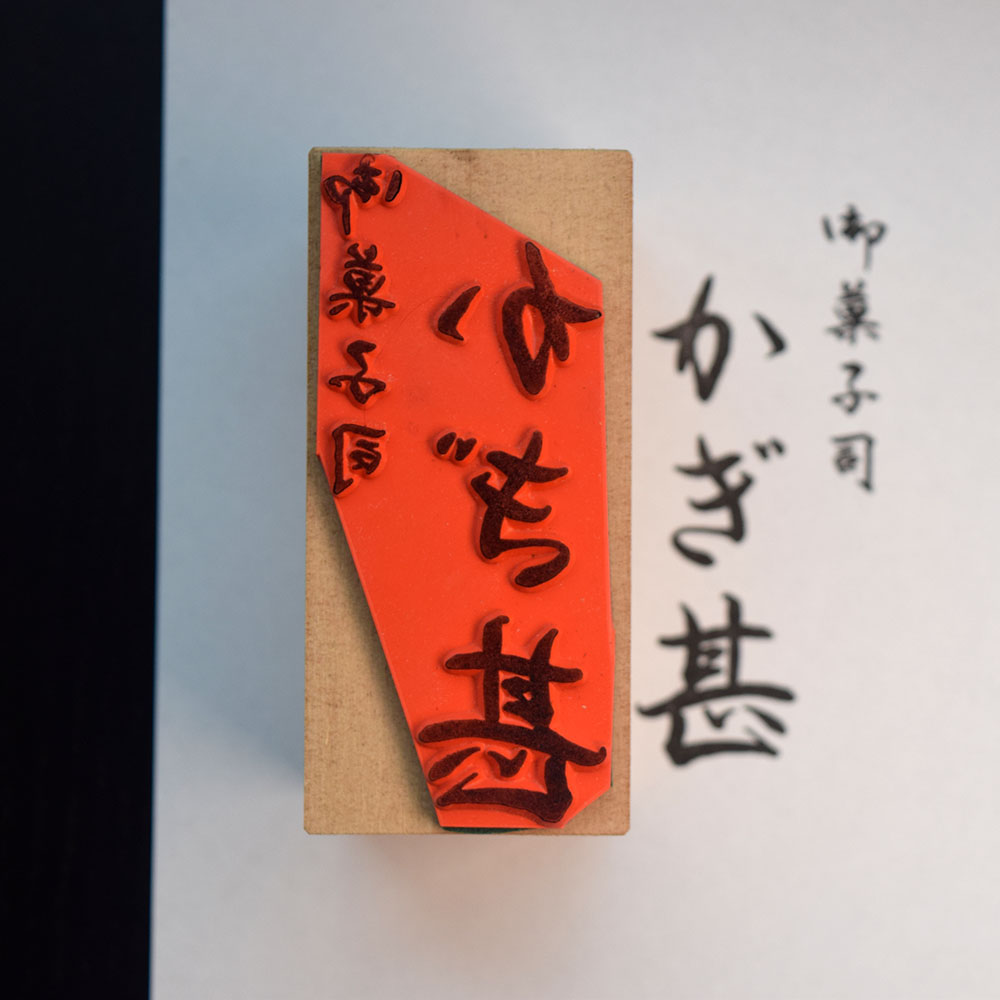 御菓子司
かぎ甚
御菓子司
かぎ甚